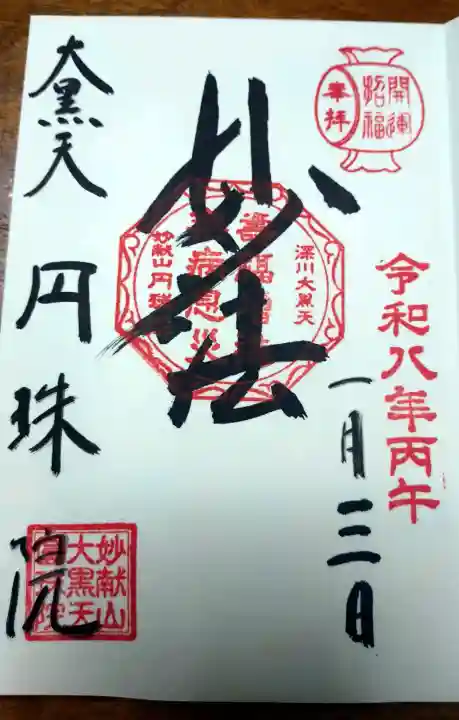 開運
招福
奉拝
令和八年丙午
一月三日
妙法
深川大黒天
病息災
妙献山円珠
大黒天
円珠院
妙献山
大黒天
円珠院